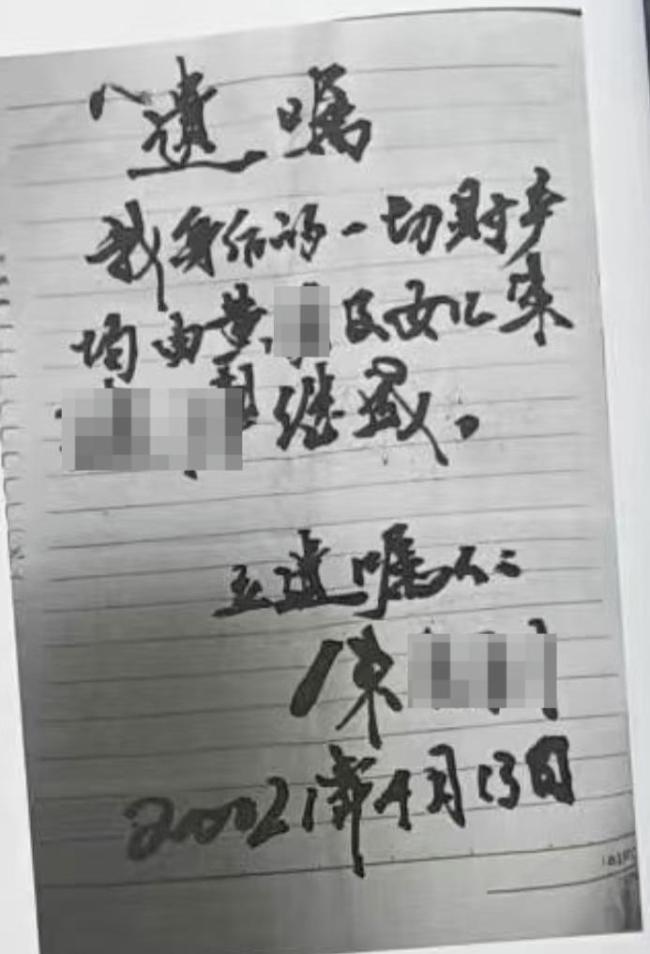 遗嘱
我身后的一切财产
均由黄及女儿陈
继承。
立遗嘱人:
陈
20021年4月13日